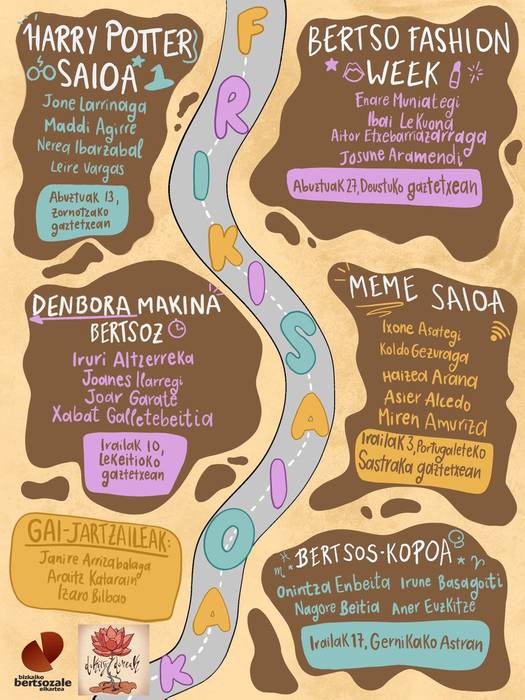 FRIKISAIOAK
HARRY POTTER
SAIOA
Jone Larrinaga
Maddi Agirre
Nerea Ibarzabal
Leire Vargas
Abuztuak 13,
Zornotzako
gaztetxean
BERTSO FASHION
WEEK
Enare Muniategi
Ibai Lekuona
Aitor Etxebarriazarraga
Josune Aramendi
Abuztuak 27, Deustuko gaztetxean
DENBORA MAKINA
BERTSOZ
Iruri Altzerreka
Joanes Ilarregi
Joar Garate
Xabat Galletebeitia
Irailak 10,
Lekeitioko
gaztetxean
MEME SAIOA
Ixone Asategi
Koldo Gezuraga
Haizea Arana
Asier Alcedo
Miren Amuriza
Irailak 3, Portugaleteko
Sastraka gaztetxean
GAI-JARTZAILEAK:
Janire Arrizabalaga
Araitz Katarain
Izaro Bilbao
BERTSOS-KOPOA
Onintza Enbeita Irune Basagoiti
Nagore Beitia Aner Euzkitze
Irailak 17, Gernikako Astran
bizkaiko
bertsozale
elkartea